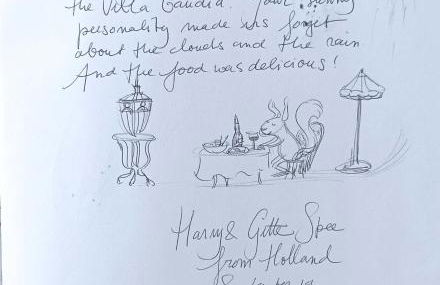 the Villa Gaudia. Your sunny
personality made us forget
about the clouds and the rain
And the food was delicious!
Harry & Gitte Spee
from Holland